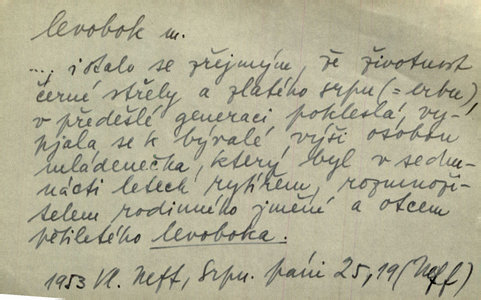 levobok m.
.... i stalo se zřejmým, že životnost
černé střely a zlatého srpu (= erbu),
v předešlé generaci pokleslá, vy-
pjala se k bývalé výši osobou
mládenečka, který byl v sedm-
nácti letech rytířem, rozmnoži-
telem rodinného jmění a otcem
pětiletého levoboka.
1953 Vl. Neff, Srpn. páni 25, 19 (Neff)